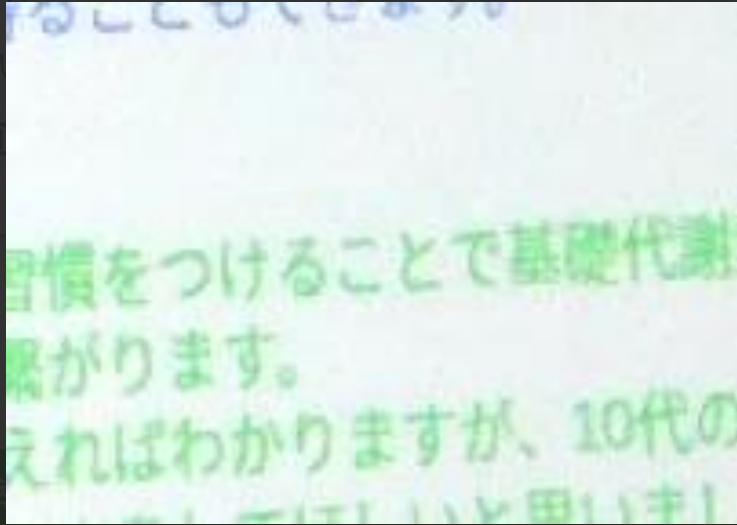 ることもできます。
習慣をつけることで基礎代謝
繋がります。
えればわかりますが、10代の
してほしいと思いまし